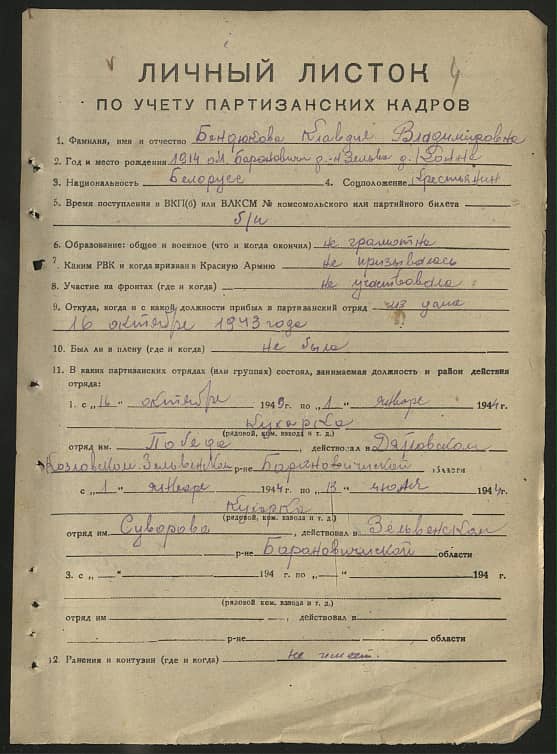 4
ЛИЧНЫЙ ЛИСТОК
ПО УЧЕТУ ПАРТИЗАНСКИХ КАДРОВ
1. Фамилия, имя и отчество Бендюкова Клавдия Владимировна
2. Год и место рождения 1914 обл. Барановичи р-н Зельва д.
3. Национальность Белорусс 4. Соцположение Крестьянин
5. Время поступления в ВКП(б) или ВЛКСМ № комсомольского или партийного билета
б/п
6. Образование: общее и военное (что и когда окончил) не грамотна
7. Каким РВК и когда призван в Красную Армию не призывалась
8. Участие на фронтах (где и когда) не участвовала
9. Откуда, когда и с какой должности прибыл в партизанский отряд из дома
16 октября 1943 года
10. Был ли в плену (где и когда) не была
11. В каких партизанских отрядах (или группах) состоял, занимаемая должность и район действия
отряда:
1. с „16" октября 1943г. по „1" январе 1944г.
Кухарка
(рядовой, ком. взвода и т. д.)
отряд им. Победа, действовал в Дятловском
Козловском Зельвенском р-не Барановичской области
с „1" январе 1944 г. по „13" июля 1944г.
Кухарка
(рядовой, ком. взвода и т. д.)
отряд им. Суворова, действовал в Зельвенском
р-не Барановичской области
3. с „ — " 194 г. по „ — " 194 г.
(рядовой ком. взвода и т. д.)
отряд им. , действовал в
р-не области
12. Ранения и контузии (где и когда) не имеет.